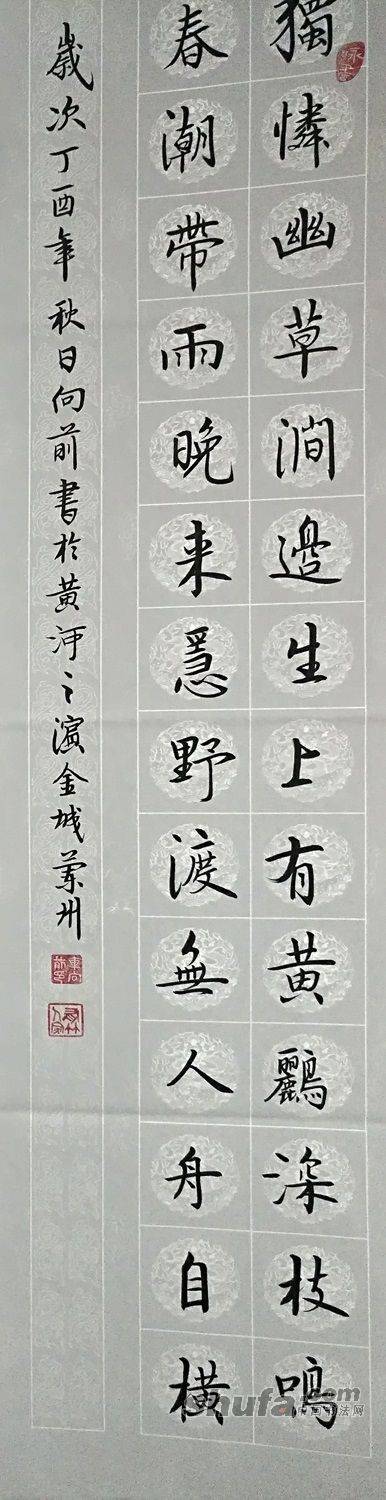 獨憐幽草澗邊生上有黄鸝深枝鳴
春潮帶雨晚来急野渡無人舟自横
歲次丁酉年秋日向前書於黄河之濱金城蘭州
shufa.com
中国书法网